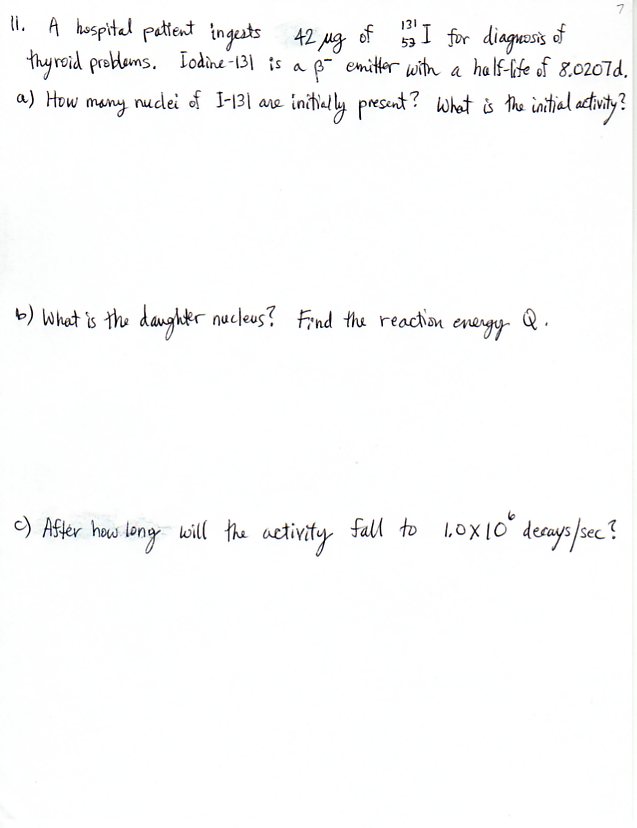 7
11. A hospital patient ingests 42 μg of ¹³¹₅₃I for diagnosis of
thyroid problems. Iodine-131 is a β⁻ emitter with a half-life of 8.0207d.
a) How many nuclei of I-131 are initially present? What is the initial activity?
b) What is the daughter nucleus? Find the reaction energy Q.
c) After how long will the activity fall to 1.0X10⁶ decays/sec?